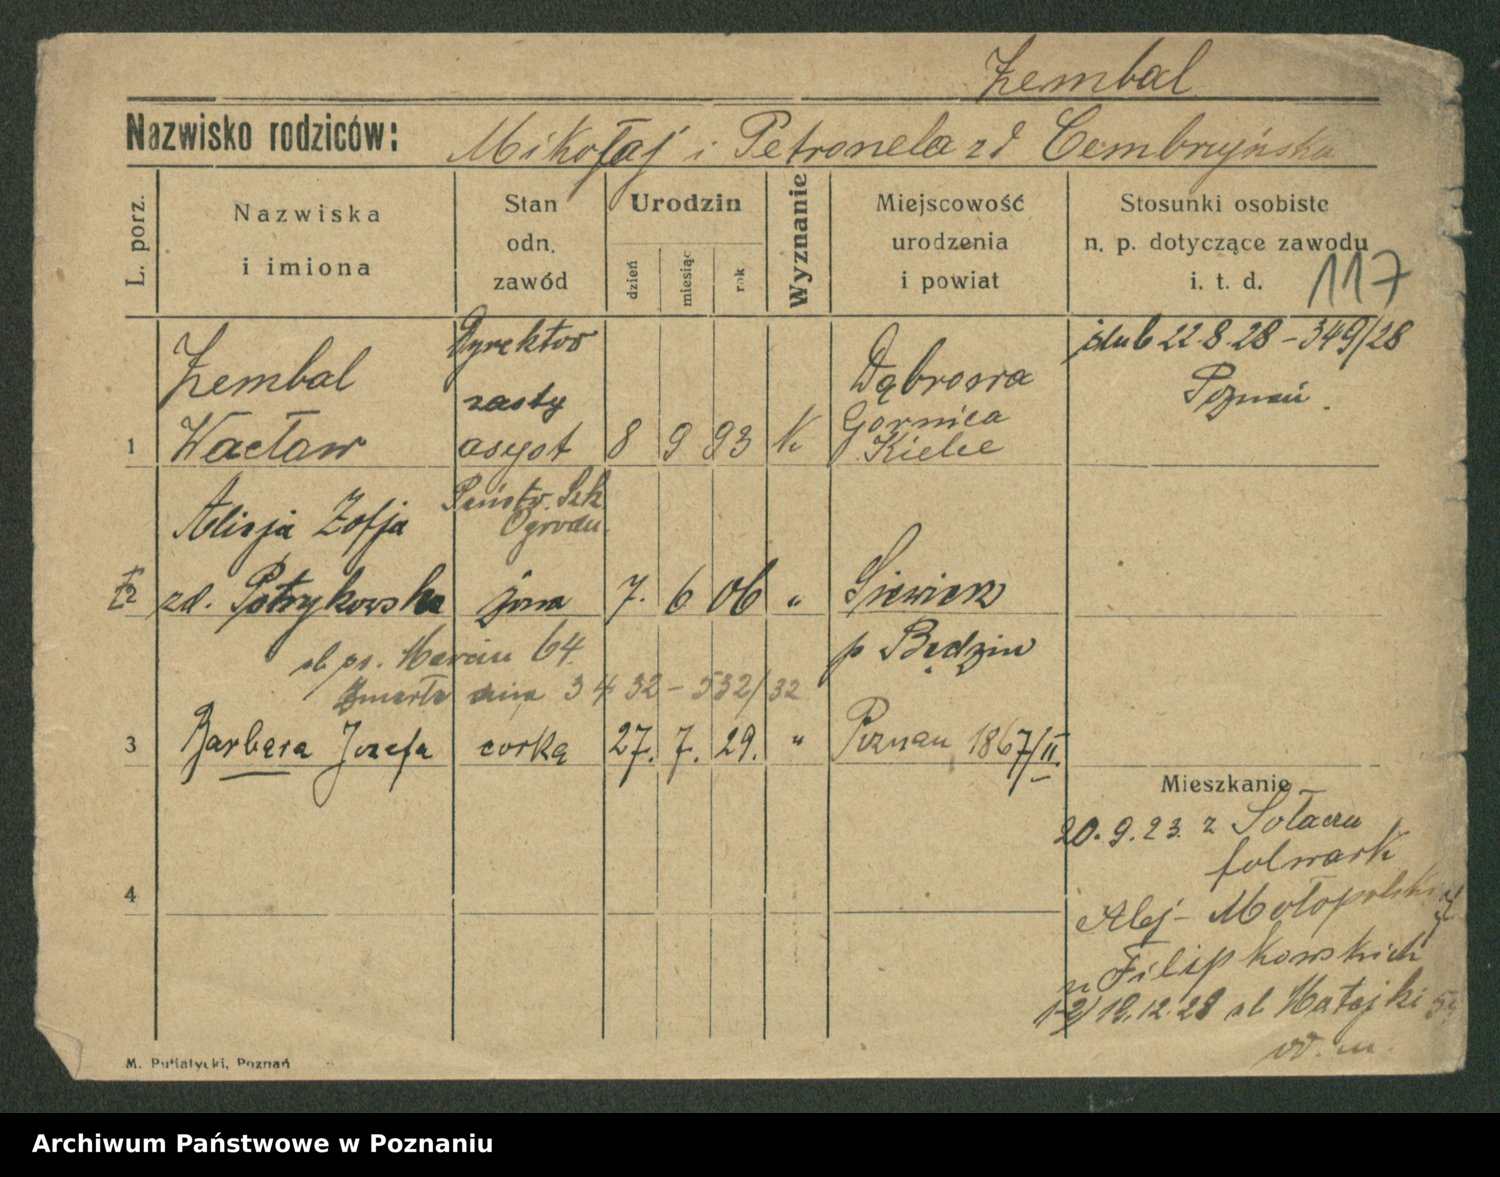 Zembal
Nazwisko rodziców: Mikołaj i Petronela zd Cembrzyńska
L. porz.
Nazwiska i imiona
Stan odn. zawód
Urodzin
dzień
miesiąc
rok
Wyznanie
Miejscowość urodzenia i powiat
Stosunki osobiste
n. p. dotyczące zawodu
i. t. d.
117
1
Zembal
Wacław
Dyrektor
zasty
asyst
Państw. Szk
Ogrodu.
8 9 93 K
Dąbrowa
Gornica
Kielce
ślub 22.8.28 – 349/28
Poznań.
2
Alicja Zofja
zd. Potrykowska
żona
7. 6 06 "
Siewierz
p Będzin
ul św. Marcin 64.
Zmarła dnia 3 4 32 – 532/32
3
Barbara Józefa
corka
27. 7. 29. "
Poznan 1867/II.
4
Mieszkanie
20.9.23. z Sołacza
folwark
Alej- Małopolski
u Filipkowskich
1-2/ 19.12.28 ul Matejki
M. Putiatycki, Poznań
Archiwum Państwowe w Poznaniu